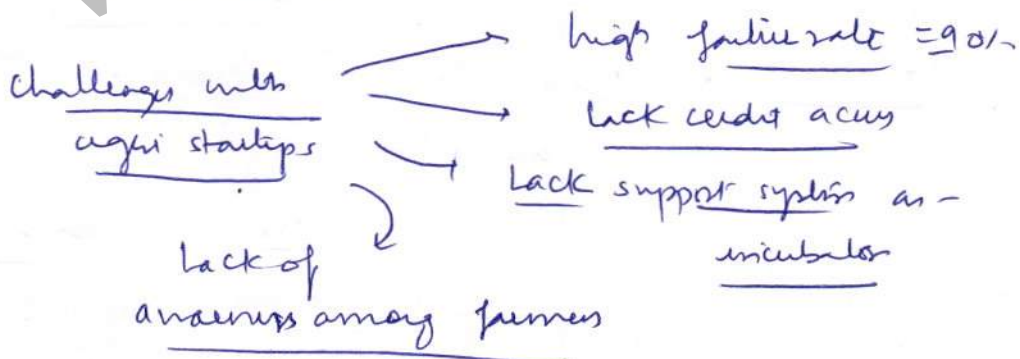 challenges with
agri startups
high failure rate = 90%
Lack credit access
Lack support system as -
incubator
Lack of
awareness among farmers